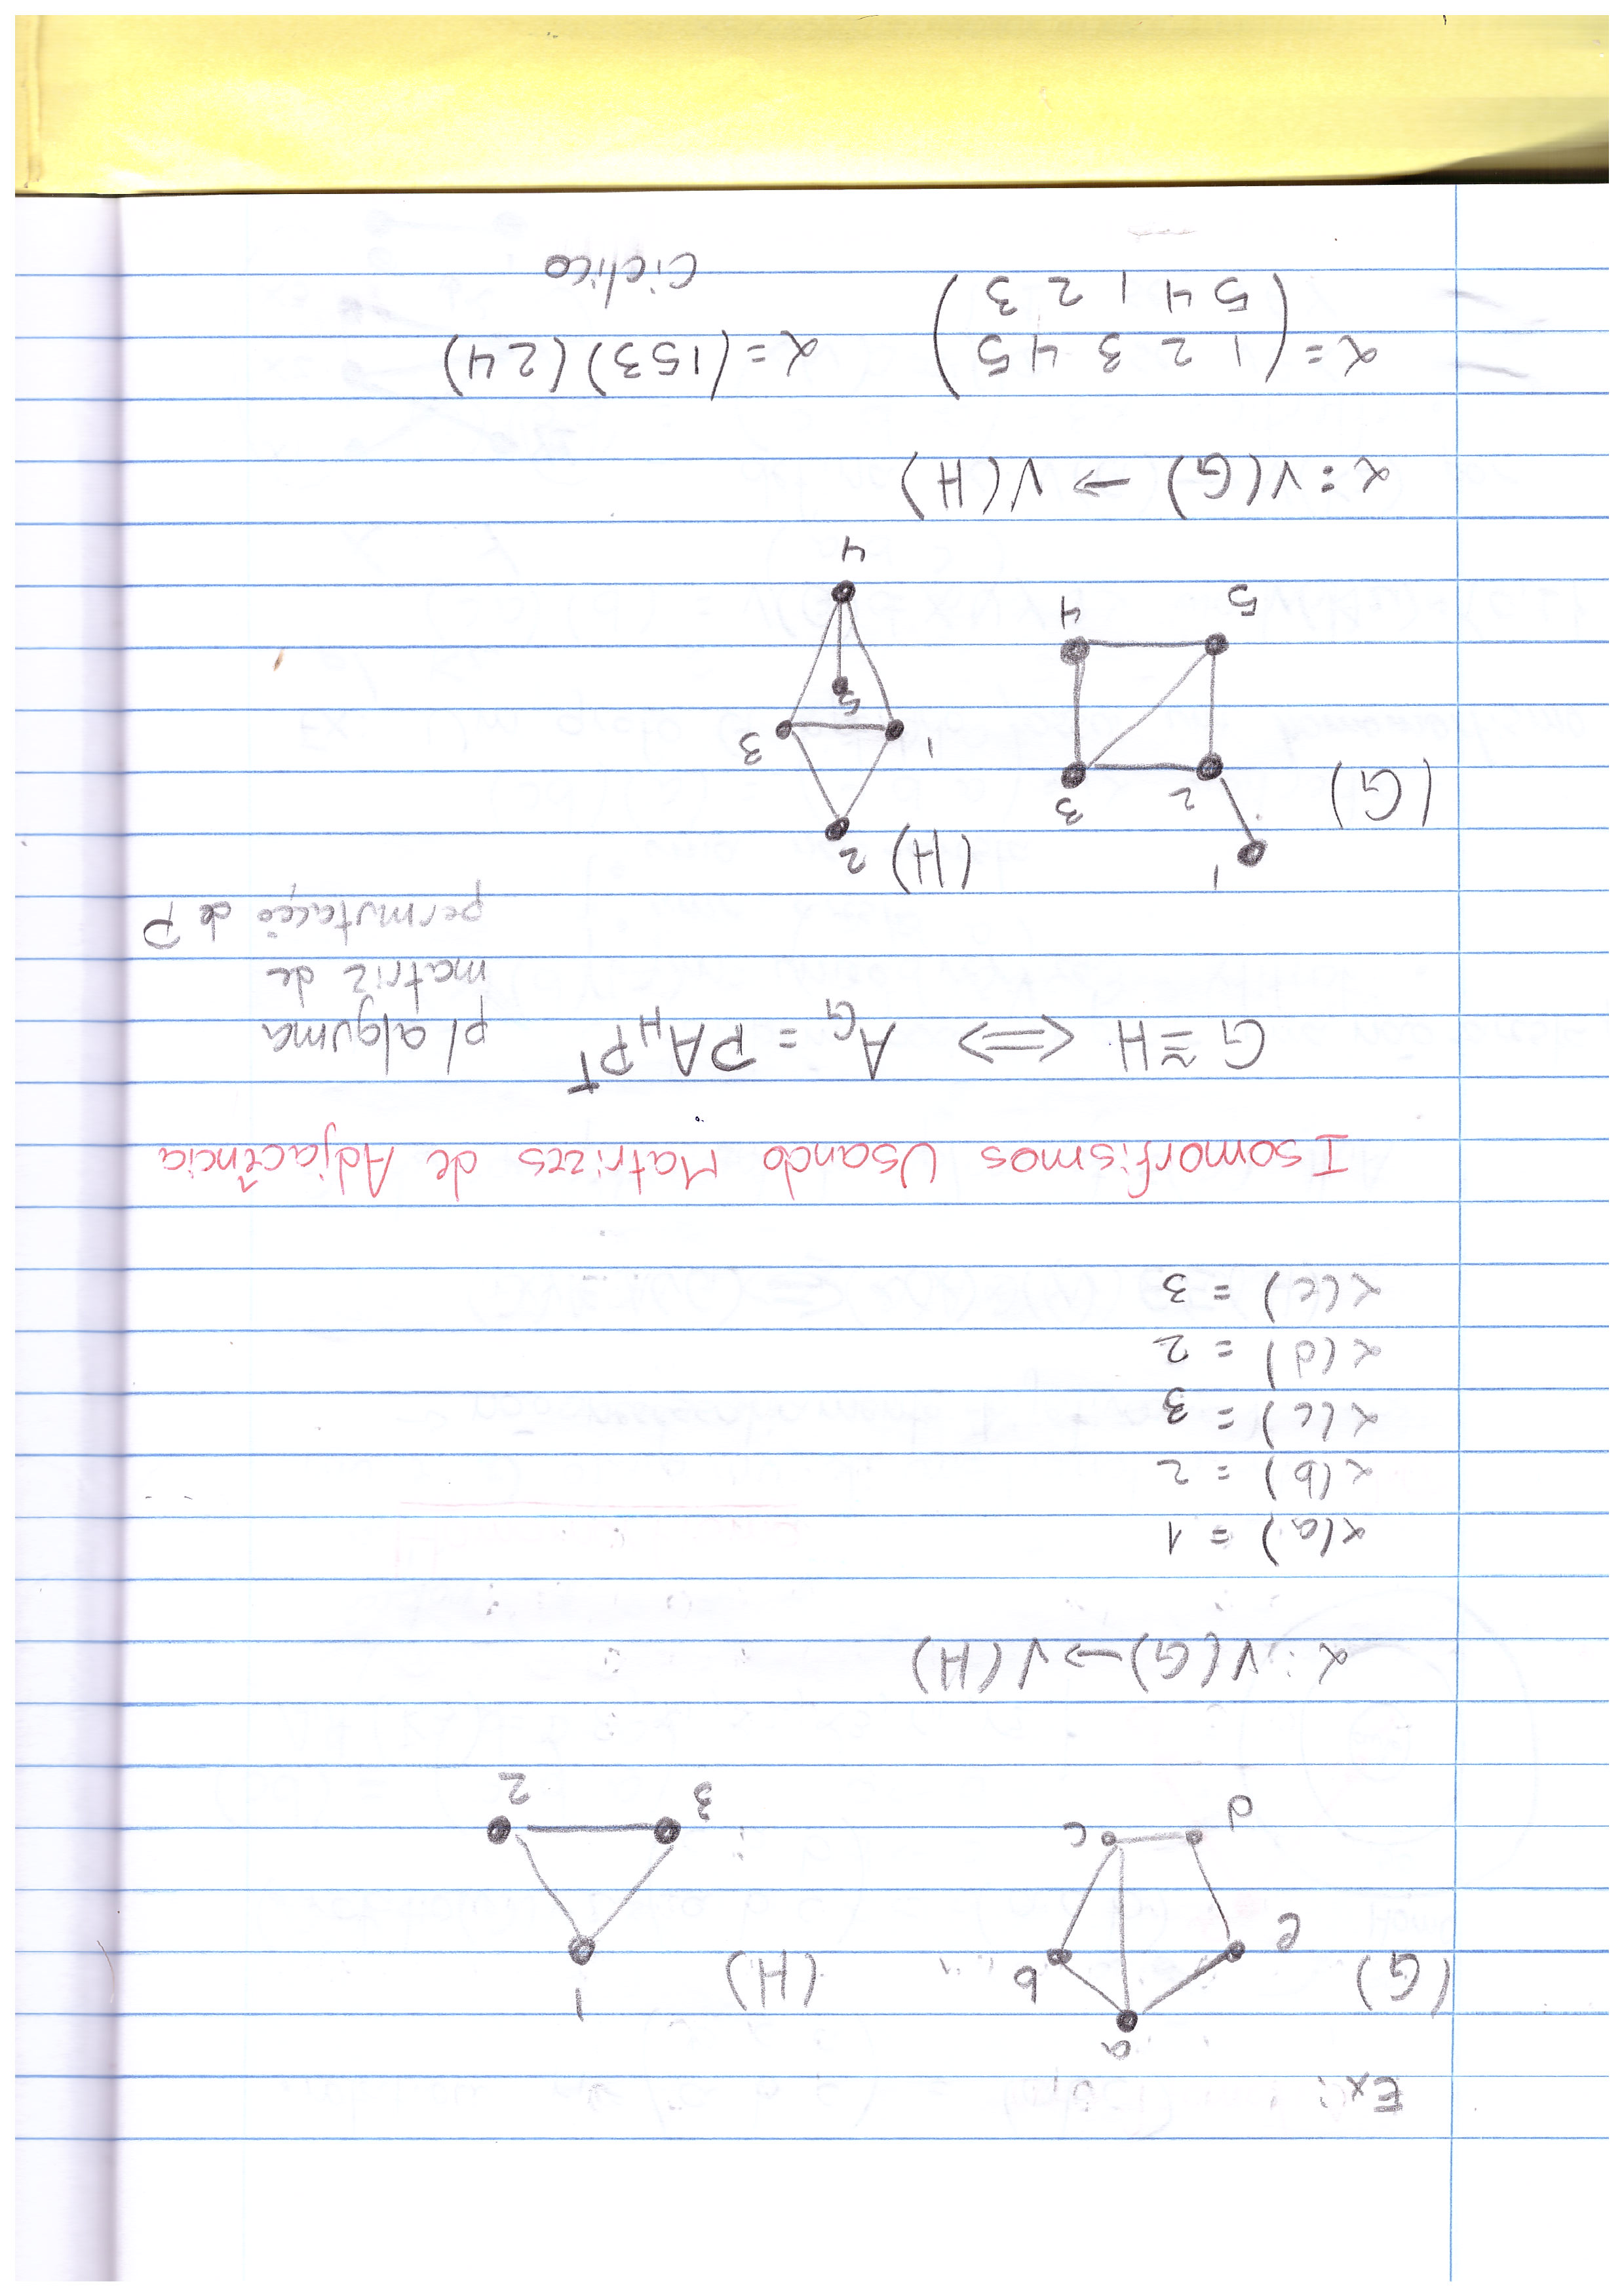 Ex:
(G) a b c d e
(H) 1 2 3
α : V(G) → V(H)
α(a) = 1
α(b) = 2
α(c) = 3
α(d) = 2
α(e) = 3
Isomorfismos Usando Matrizes de Adjacência
G ≅ H ⟺ A_G = P A_H P^T p/ alguma
matriz de
permutação de P
(G) 1 2 3 4 5
(H) 2 1 3 5 4
α : V(G) → V(H)
α = ( 1 2 3 4 5 α = (153)(24)
5 4 1 2 3 )
Ciclico